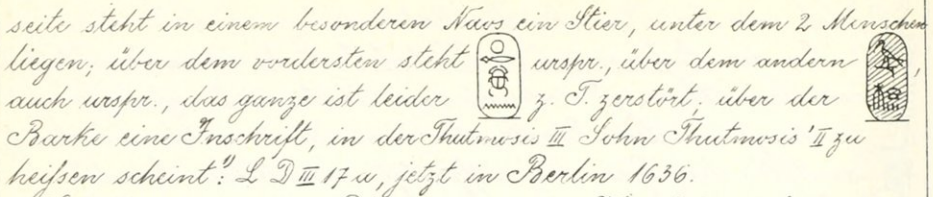 seite steht in einem besonderen Naos ein Stier, unter dem 2 Menschen
liegen; über dem vordersten steht urspr., über dem andern ,
auch urspr., das ganze ist leider z. T. zerstört; über der
Barke eine Inschrift, in der Thutmosis III Sohn Thutmosis' II zu
heißen scheint": L D III 17 a, jetzt in Berlin 1636.